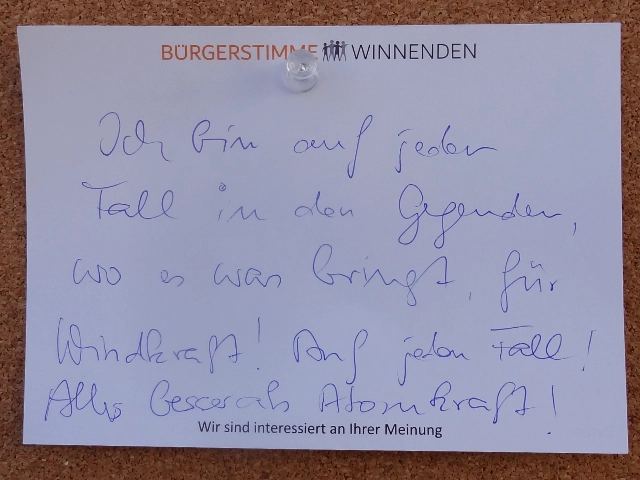 BÜRGERSTIMME WINNENDEN
Ich bin auf jeden
Fall in den Gegenden,
wo es was bringt, für
Windkraft! Auf jeden Fall!
Alles besser als Atomkraft!
Wir sind interessiert an Ihrer Meinung